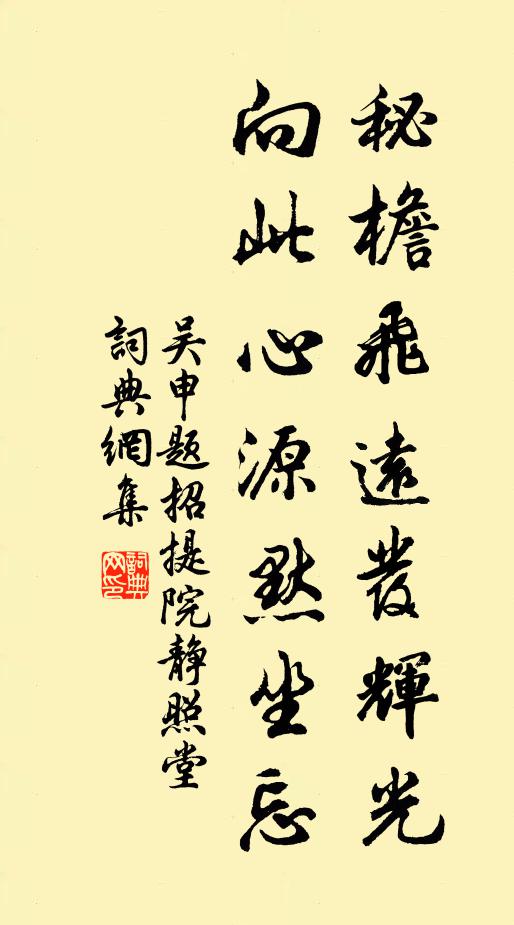 秘檐飛遠發輝光
向此心源默坐忘
吴申题招提院静照堂
詞典網集
詞典
网印